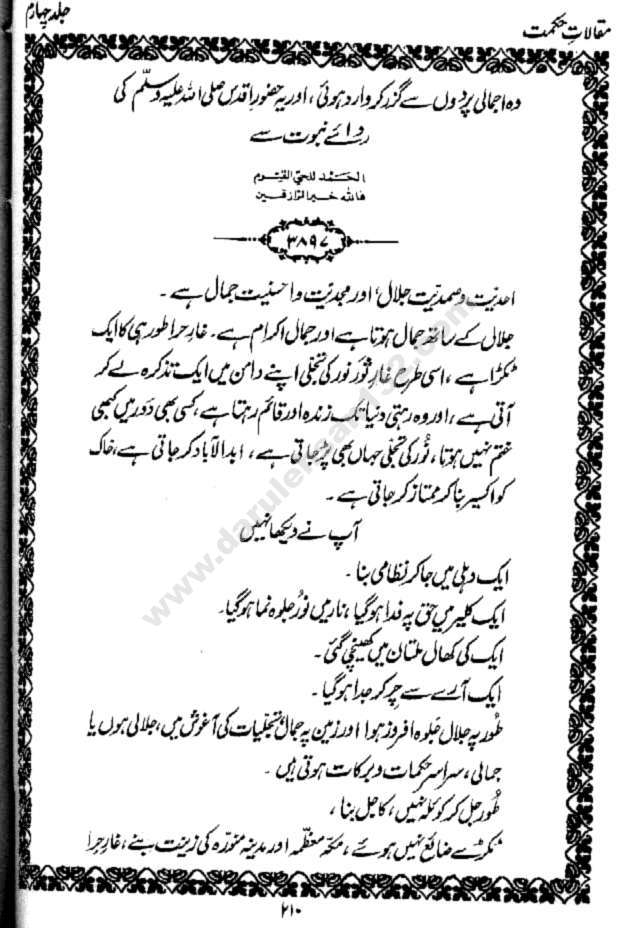 مقالاتِ حکمت
جلد چہارم
وہ اجمالی پردوں سے گزر کر وارد ہوئی، اور یہ حضورِ اقدس صلی اللہ علیہ وسلّم کی
ردائے نبوت سے
الحَمْد للحیّ القیّوم
فاللہ خیرالرّازقین
۳۸۹۷
احدیّت و صمدیّت جلال، اور مجدیّت و احسنیت جمال ہے۔
جلال کے ساتھ جمال ہوتا ہے اور جمال اکرام ہے۔ غارِ حرا طور ہی کا ایک
ٹکڑا ہے، اسی طرح غارِ ثور نور کی تجلی اپنے دامن میں ایک تذکرہ لے کر
آتی ہے، اور وہ رہتی دنیا تک زندہ اور قائم رہتا ہے، کسی بھی دَور میں کبھی
ختم نہیں ہوتا، نُور کی تجلی جہاں بھی پڑ جاتی ہے، ابدالآباد کر جاتی ہے، خاک
کو اکسیر بنا کر ممتاز کر جاتی ہے۔
آپ نے دیکھا نہیں
ایک دہلی میں جا کر نظامی بنا۔
ایک کلیر میں حق پہ فدا ہو گیا، نار میں نُور جلوہ نما ہو گیا۔
ایک کی کھال ملتان میں کھینچی گئی۔
ایک آرے سے چر کر جدا ہو گیا۔
طُور پہ جلال جَلوہ افروز ہوا اور زمین پہ جمال، تجلّیات کی آغوش میں، جلالی ہوں یا
جمالی، سراسر حکمات و برکات ہوتی ہیں۔
طُور جل کر کوئلہ نہیں، کاجل بنا،
ٹکڑے ضائع نہیں ہوئے، مکّہ معظّمہ اور مدینہ منوّرہ کی زینت بنے، غارِ حرا
۲۱۰
www.darulehsan132.com